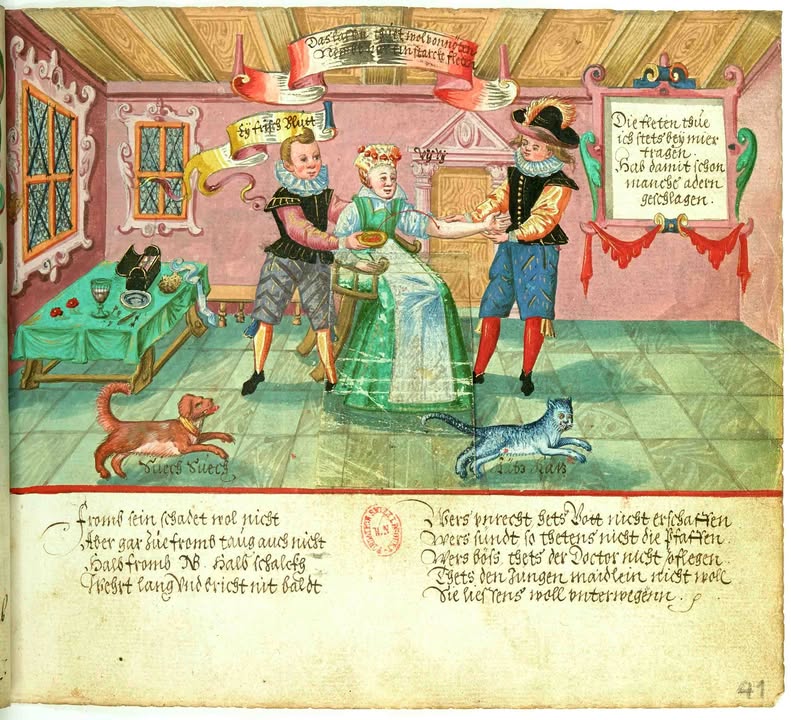 Das lassen thuet wol vonnöten
Nembt
Ey frisch Blutt
Die fleten thue
ich stets bey mier
tragen.
Hab damit schon
manche adern
geschlagen.
Suech Suech
Katz Katz
Fromb sein schadet wol nicht
Aber gar züe fromb taug auch nicht
Halb fromb NB. Halb schalckh
Wehrt lang vnd bricht nit baldt
Wers vnrecht hets Gott nicht erschaffen
Wers sündt so thetens nicht die Pfaffen.
Wers böss thets der Doctor nicht pflegen.
Thets den Jungen maidlein nicht woll
Sie liessens woll vnterwegenn.
41